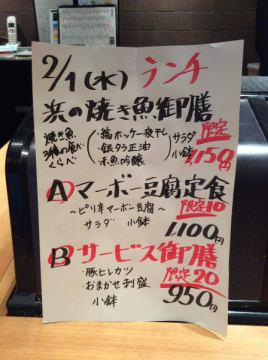 2/1(水) ランチ
浜の焼き魚御膳
焼き魚
3種の食べ
くらべ
・縞ホッケ一夜干し
・銀ダラ正油
・赤魚吟醸
サラダ
小鉢
限定
1,150円
A マーボー豆腐定食
～ピリ辛マーボー豆腐～
限定10
サラダ 小鉢
1,100円
B サービス御膳
・豚ヒレカツ
限定20
・おまかせ刺盛
小鉢
950円